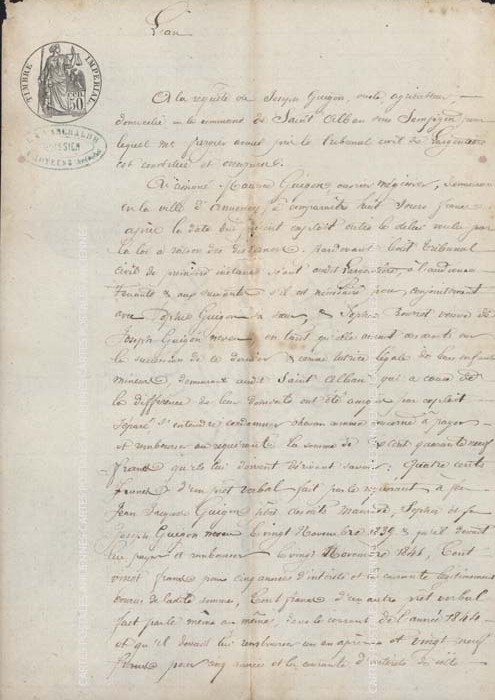 L'an
TIMBRE IMPERIAL
50
A la requête de Joseph Guigon, oncle agriculteur,
domicilié en la commune de Saint Alban sous Sampzon, pour
lequel Me avoué près le Tribunal civil de Largentière
est constitué et occupera.
Guigon, ouvrier mégissier, demeurant
en la ville d'Annonay, à comparaître huit jours francs
après la date du présent exploit outre le délai voulu par
la loi à raison des distances, pardevant ledit tribunal
civil de première instance séant audit Largentière, à l'audience
tenante & aux suivantes s'il est nécessaire pour, conjointement
avec Sophie Guigon sa soeur, & Sophie veuve de
Joseph Guigon neveu, en tant qu'elle aurait des droits sur
la succession de ce dernier & comme tutrice légale de ses enfants
mineurs, demeurant audit Saint Alban, qui à cause de
la différence de leur domicile ont été assignés par exploit
séparé, s'entendre condamner chacun à payer
et rembourser au requérant la somme de sept cent quarante neuf
francs qu'ils lui doivent savoir : Quatre cents
francs d'un prêt verbal fait par le requérant à feu
Jean Jacques Guigon père desdits Sophie et feu
Joseph Guigon neveu le vingt Novembre 1839 & qu'il devait
lui payer et rembourser le vingt Novembre 1841, Cent
vingt francs pour cinq années d'intérêts et la courante légitimement
de ladite somme, Cent francs d'un autre prêt verbal
fait par le même au même, dans le courant de l'année 1844
et qu'il devait lui rembourser un an après et vingt neuf
francs pour cinq années et la courante d'intérêts de ladite